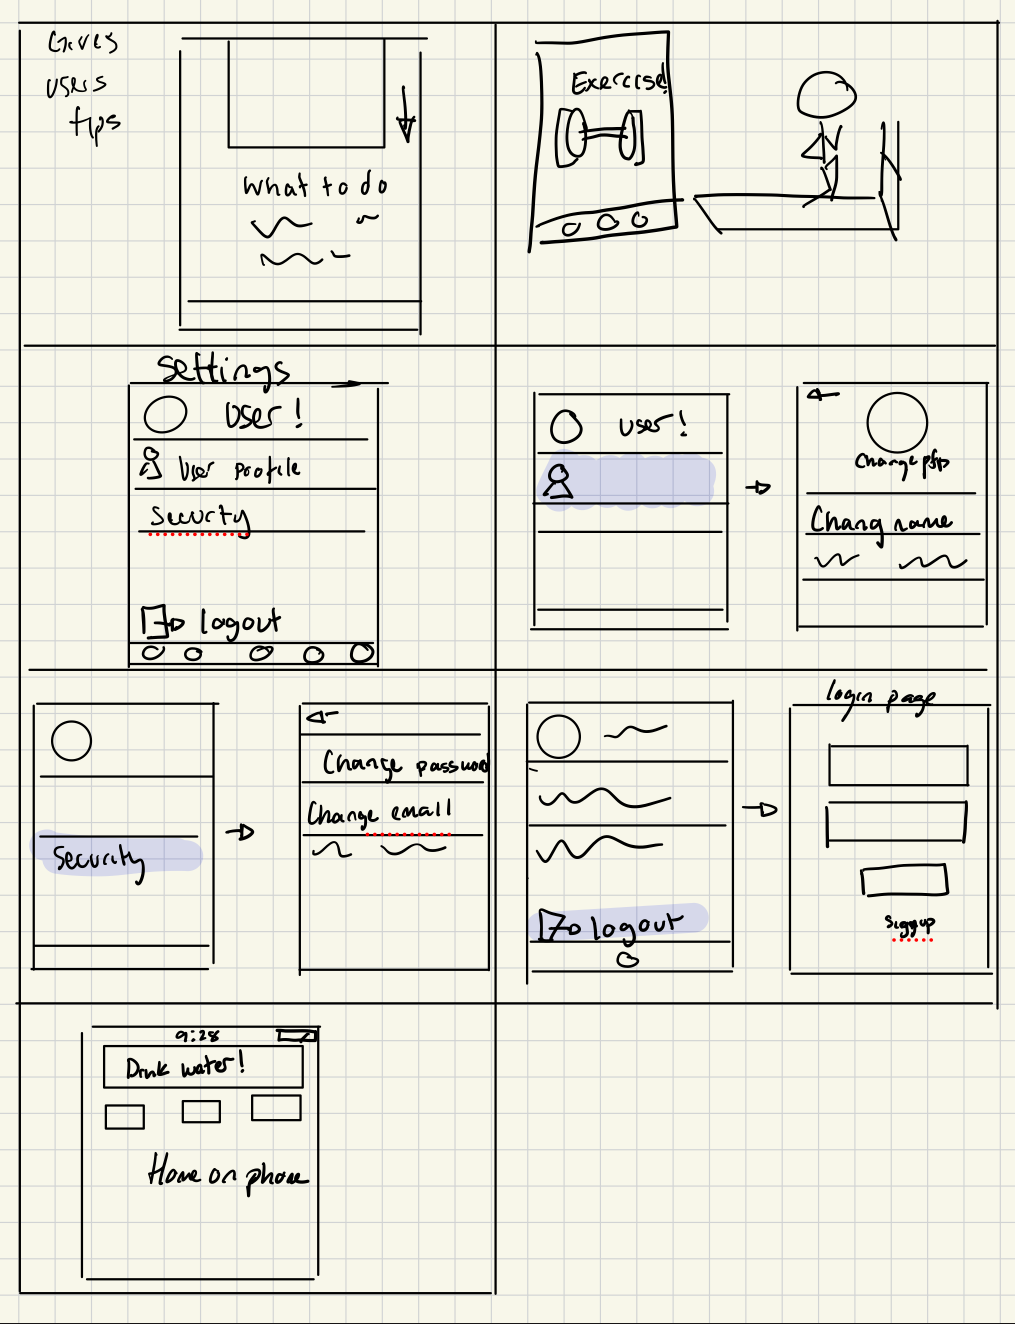 Gives
users
tips
What to do
Exercise!
Settings
User!
User profile
Security
logout
user!
Change pfp
Chang name
Security
Change password
Change email
logout
login page
Siggup
9:28
Drink water!
Home on phone